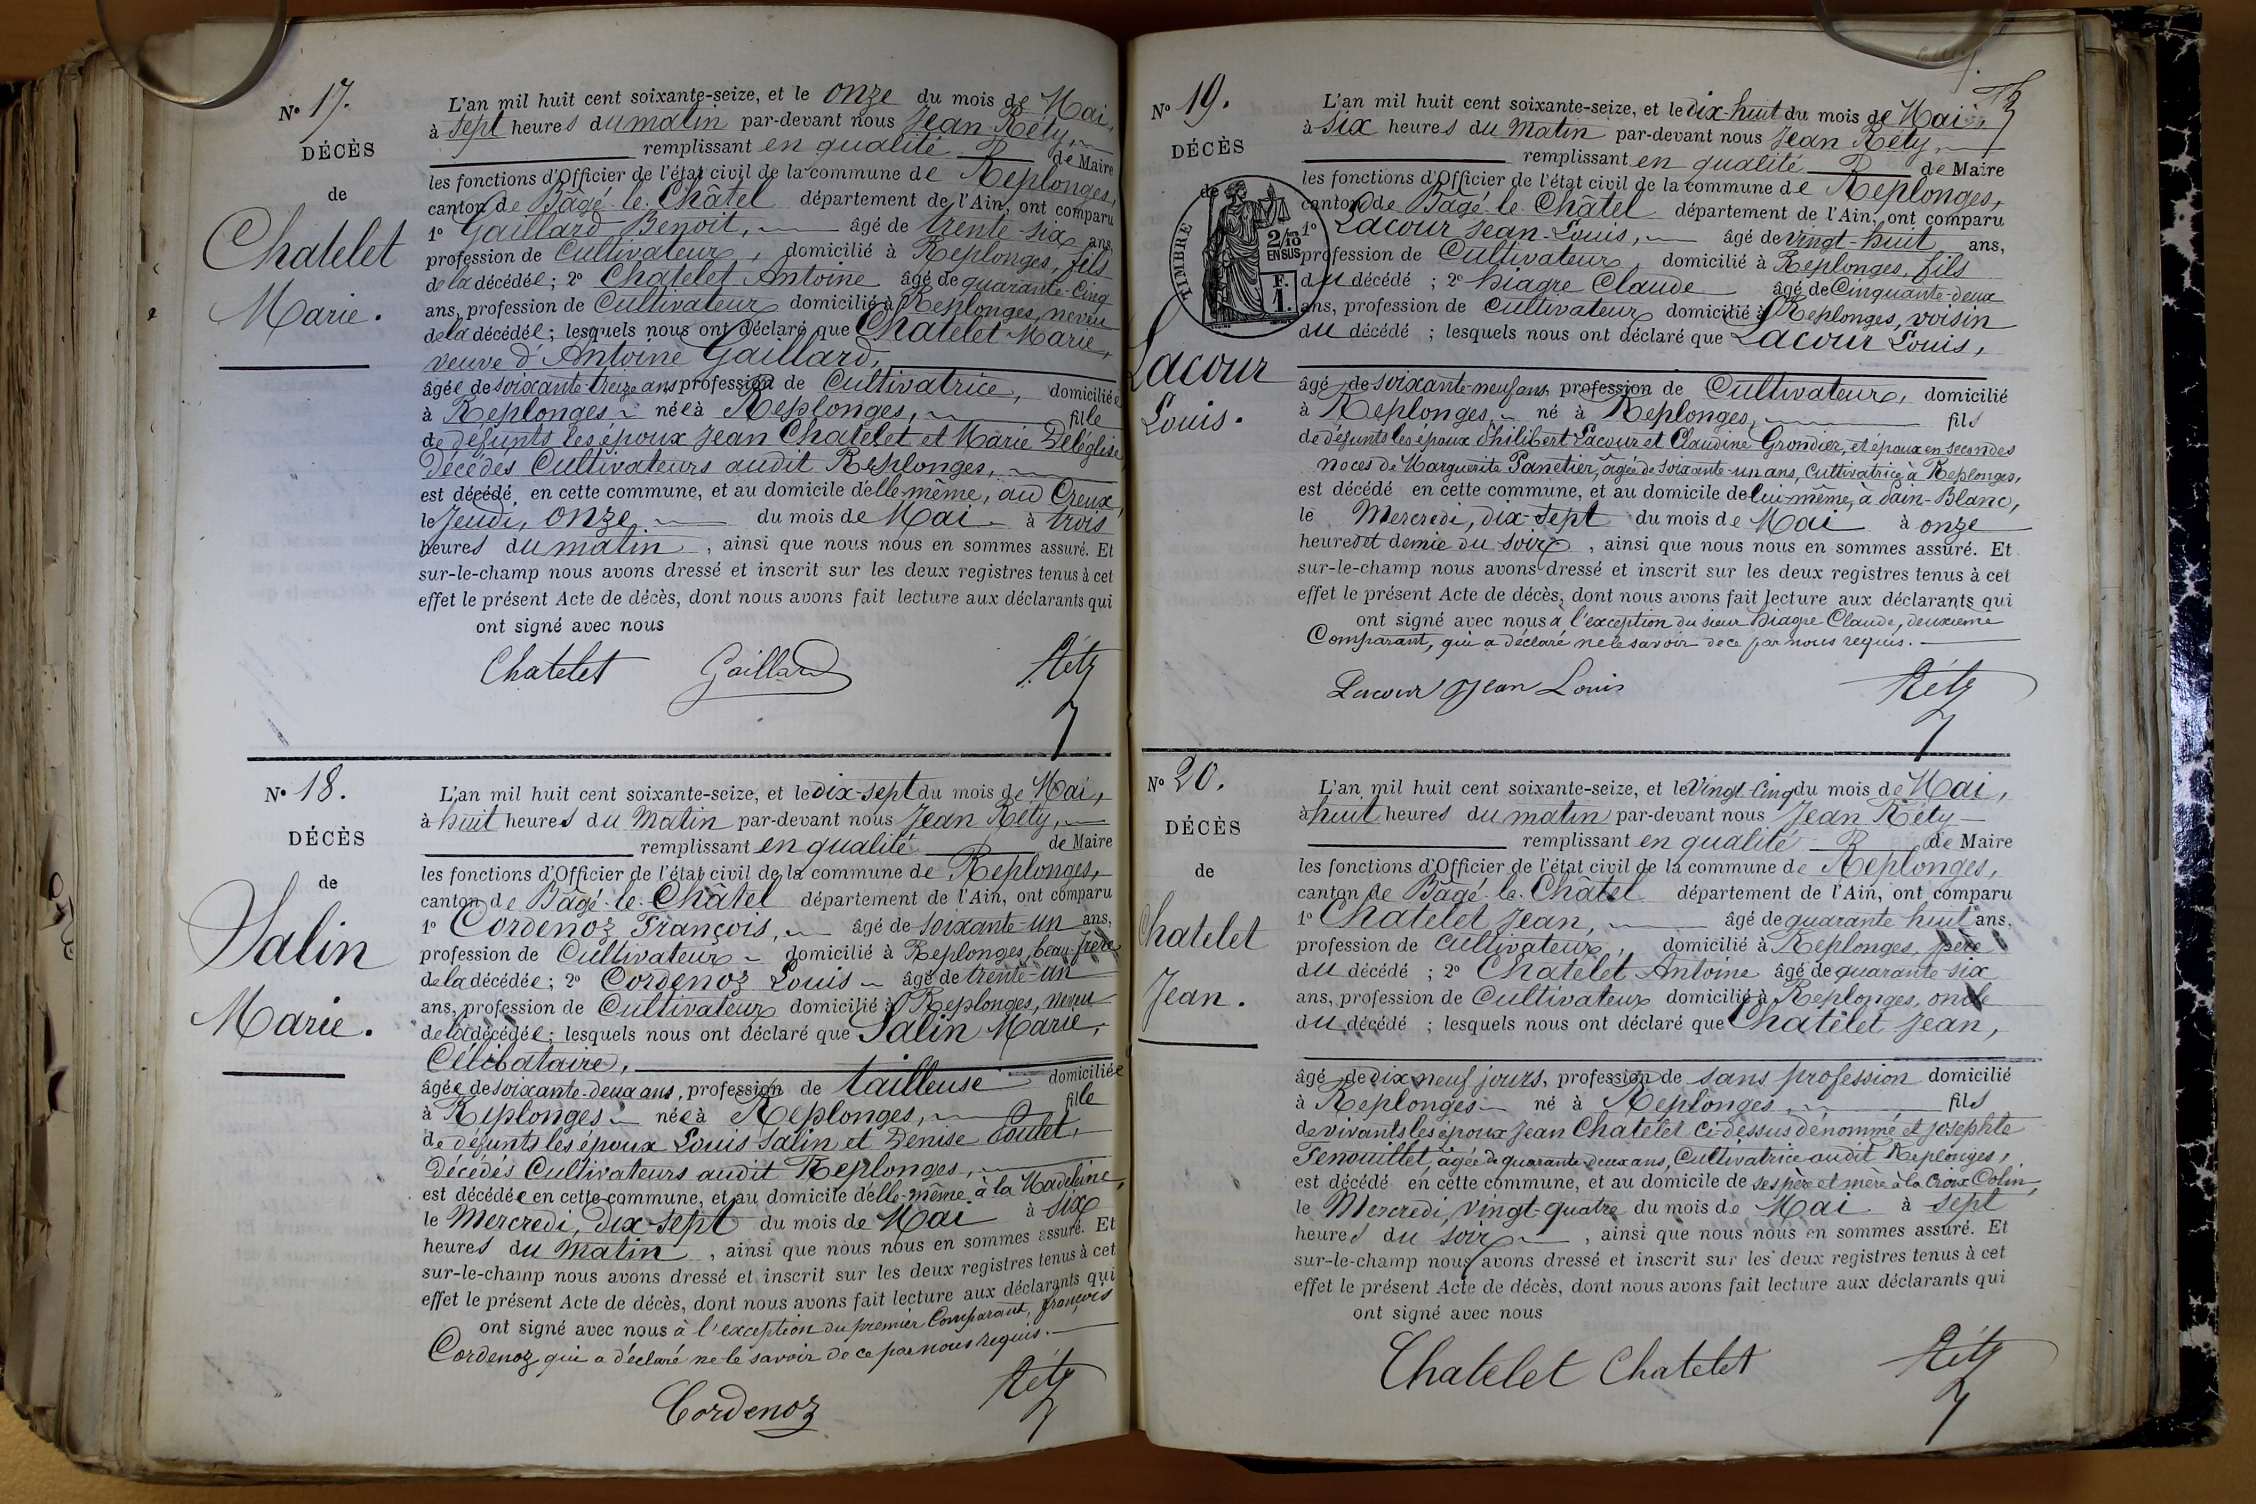 N° 17.
DÉCÈS
de
Chatelet
Marie.
L'an mil huit cent soixante-seize, et le onze du mois de Mai,
à sept heures du matin par-devant nous Jean Réty,
remplissant en qualité de Maire
les fonctions d'Officier de l'état civil de la commune de Replonges,
canton de Bâgé-le-Châtel département de l'Ain, ont comparu
1° Gaillard Benoit, âgé de trente-six ans,
profession de Cultivateur, domicilié à Replonges, fils
de la décédée; 2° Chatelet Antoine âgé de quarante-cinq
ans, profession de Cultivateur domicilié à Replonges, neveu
de la décédée; lesquels nous ont déclaré que Chatelet Marie,
veuve d'Antoine Gaillard,
âgée de soixante treize ans profession de Cultivatrice, domiciliée
à Replonges née à Replonges, fille
de defunts les époux Jean Chatelet et Marie Deléglise
Décédés Cultivateurs audit Replonges,
est décédé en cette commune, et au domicile d'elle-même, au Creux,
le Jeudi, onze du mois de Mai à trois
heures du matin, ainsi que nous nous en sommes assuré. Et
sur-le-champ nous avons dressé et inscrit sur les deux registres tenus à cet
effet le présent Acte de décès, dont nous avons fait lecture aux déclarants qui
ont signé avec nous
Chatelet Gaillard Réty
N° 18.
DÉCÈS
de
Salin
Marie.
L'an mil huit cent soixante-seize, et le dix-sept du mois de Mai,
à huit heures du Matin par-devant nous Jean Réty,
remplissant en qualité de Maire
les fonctions d'Officier de l'état civil de la commune de Replonges,
canton de Bâgé-le-Châtel département de l'Ain, ont comparu
1° Cordenoz François, âgé de soixante-un ans,
profession de Cultivateur domicilié à Replonges, beau-frère
de la décédée; 2° Cordenoz Louis âgé de trente-un
ans, profession de Cultivateur domicilié à Replonges, neveu
de la décédée; lesquels nous ont déclaré que Salin Marie,
Célibataire,
âgée de soixante-deux ans, profession de tailleuse domiciliée
à Replonges née à Replonges, fille
de défunts les époux Louis Salin et Denise
Décédés Cultivateurs audit Replonges,
est décédée en cette commune, et au domicile d'elle-même à la Madeleine,
le Mercredi, Dix-sept du mois de Mai à six
heures du Matin, ainsi que nous nous en sommes assuré. Et
sur-le-champ nous avons dressé et inscrit sur les deux registres tenus à cet
effet le présent Acte de décès, dont nous avons fait lecture aux déclarants qui
ont signé avec nous à l'exception du premier Comparant, françois
Cordenoz qui a déclaré ne le savoir de ce par nous requis.
Cordenoz Réty
N° 19.
DÉCÈS
de
TIMBRE
2/10 EN SUS
F. 1.
Lacour
Louis.
L'an mil huit cent soixante-seize, et le dix-huit du mois de Mai,
à six heures du Matin par-devant nous Jean Réty,
remplissant en qualité de Maire
les fonctions d'Officier de l'état civil de la commune de Replonges,
canton de Bagé-le-Châtel département de l'Ain, ont comparu
1° Lacour Jean-Louis, âgé de vingt-huit ans,
profession de Cultivateur, domicilié à Replonges, fils
du décédé; 2° Diagre Claude âgé de Cinquante-deux
ans, profession de Cultivateur domicilié à Replonges, voisin
du décédé; lesquels nous ont déclaré que Lacour Louis,
âgé de soixante-neuf ans profession de Cultivateur, domicilié
à Replonges, né à Replonges, fils
de défunts les époux Philibert Lacour et Claudine Grondier, et époux en secondes
noces de Marguerite Panetier, âgée de soixante-un ans, Cultivatrice à Replonges,
est décédé en cette commune, et au domicile de lui-même, à Pain-Blanc,
le Mercredi, dix-sept du mois de Mai à onze
heures et demie du soir, ainsi que nous nous en sommes assuré. Et
sur-le-champ nous avons dressé et inscrit sur les deux registres tenus à cet
effet le présent Acte de décès, dont nous avons fait lecture aux déclarants qui
ont signé avec nous à l'exception du sieur Diagre Claude, deuxième
Comparant, qui a déclaré ne le savoir de ce par nous requis.
Lacour Jean Louis Réty
N° 20.
DÉCÈS
de
Chatelet
Jean.
L'an mil huit cent soixante-seize, et le Vingt-cinq du mois de Mai,
à huit heures du matin par-devant nous Jean Réty
remplissant en qualité de Maire
les fonctions d'Officier de l'état civil de la commune de Replonges,
canton de Bâgé-le-Châtel département de l'Ain, ont comparu
1° Chatelet Jean, âgé de quarante huit ans,
profession de Cultivateur, domicilié à Replonges, père
du décédé; 2° Chatelet Antoine âgé de quarante-six
ans, profession de Cultivateur domicilié à Replonges, oncle
du décédé; lesquels nous ont déclaré que Chatelet Jean,
âgé de dix neuf jours, profession de sans profession domicilié
à Replonges né à Replonges, fils
de vivants les époux Jean Chatelet ci-dessus dénommé et Josephte
Fenouillet, âgée de quarante-deux ans, Cultivatrice audit Replonges,
est décédé en cette commune, et au domicile de ses père et mère à la Croix Colin,
le Mercredi, Vingt-quatre du mois de Mai à sept
heures du soir, ainsi que nous nous en sommes assuré. Et
sur-le-champ nous avons dressé et inscrit sur les deux registres tenus à cet
effet le présent Acte de décès, dont nous avons fait lecture aux déclarants qui
ont signé avec nous
Chatelet Chatelet Réty